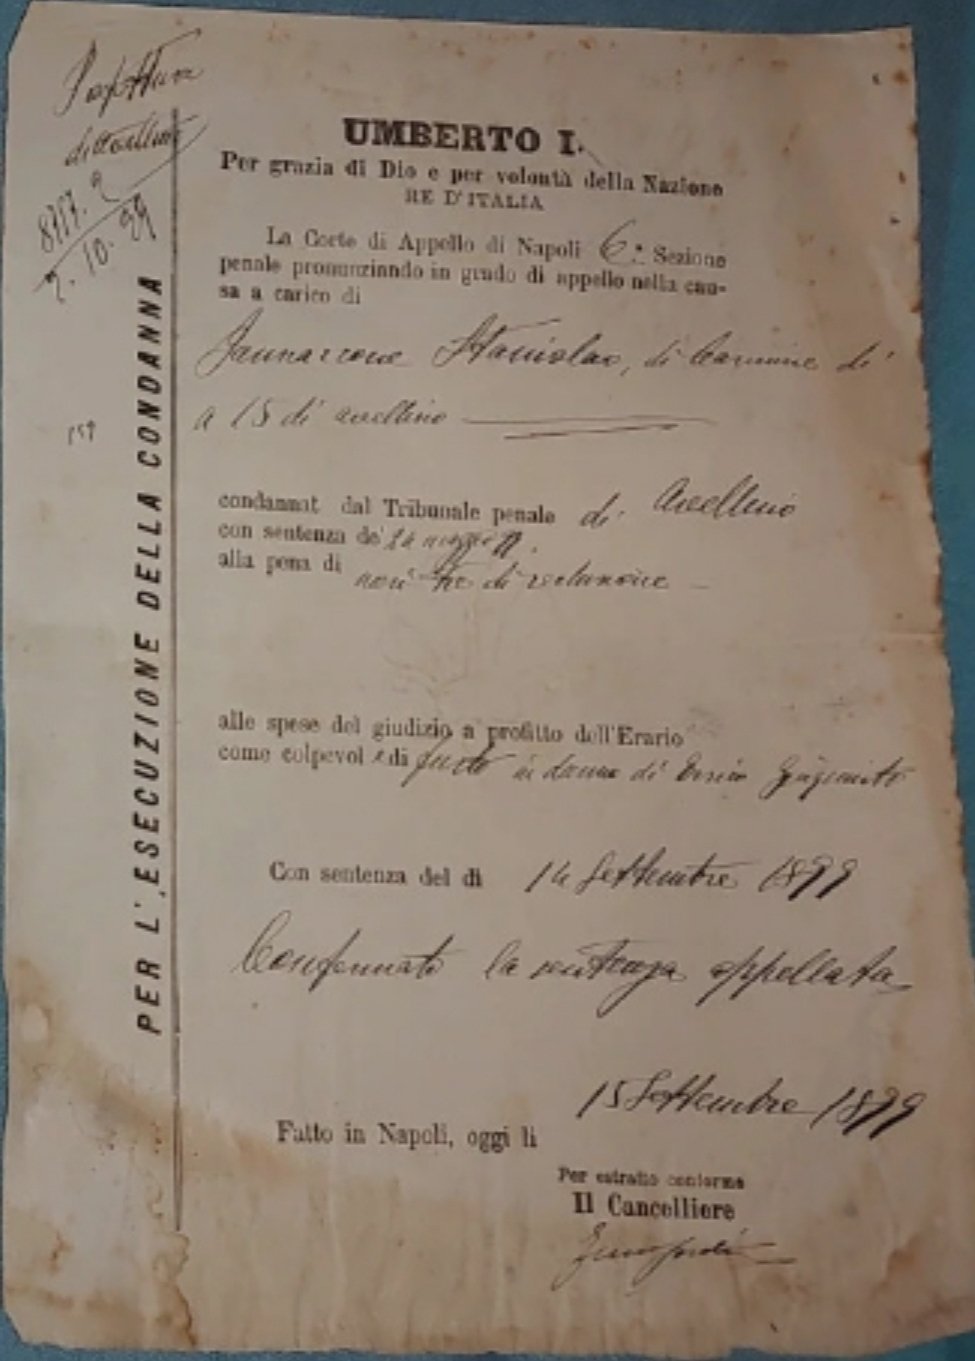 di Avellino
8757.2
2.10.99
PER L'ESECUZIONE DELLA CONDANNA
UMBERTO I.
Per grazia di Dio e per volontà della Nazione
RE D'ITALIA
La Corte di Appello di Napoli 6ª Sezione
penale pronunziando in grado di appello nella cau-
sa a carico di
Jannarrone Stanislao, di Carmine di
a 15 di Avellino
condannat dal Tribunale penale di Avellino
con sentenza de' 24 maggio 99.
alla pena di
mesi tre di reclusione
alle spese del giudizio a profitto dell'Erario
come colpevol e di furto in danno di
Con sentenza del dì 14 Settembre 1899
Confermato la sentenza appellata
Fatto in Napoli, oggi li 15 Settembre 1899
Per estratto conforme
Il Cancelliere